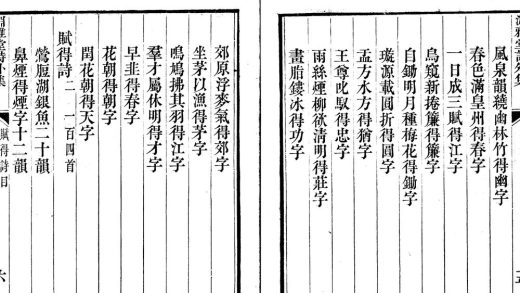 風泉韻繞幽林竹得幽字
春色滿皇州得春字
一日成三賦得江字
鳥窺新捲簾得簾字
自鋤明月種梅花得鋤字
璇源載圓折得圓字
盂方水方得猶字
王尊叱馭得忠字
雨絲煙柳欲清明得莊字
畫脂鏤冰得功字
郊原浮麥氣得郊字
坐茅以漁得茅字
鳴鳩拂其羽得江字
羣才屬休明得才字
早韭得春字
花朝得朝字
閏花朝得天字
賦得詩二 一百四首
鶯脰湖銀魚二十韻
鼻煙得煙字十二韻
賦得詩目